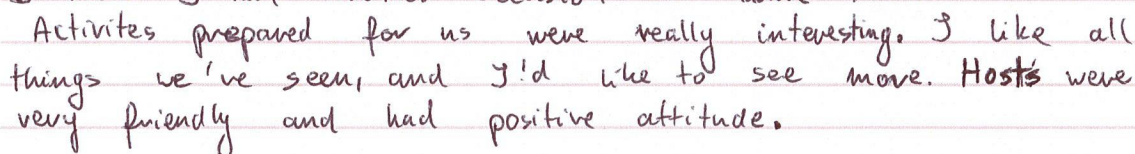 Activites prepared for us were really interesting. I like all
things we've seen, and I'd like to see more. Hosts were
very friendly and had positive attitude.